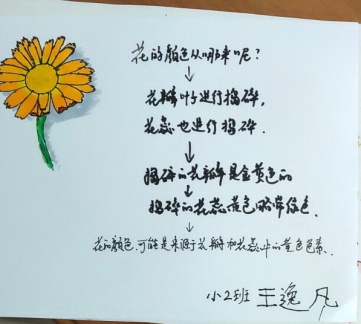 花的颜色从哪来呢?
花瓣叶子进行捣碎,
花蕊也进行捣碎.
捣碎的花瓣是金黄色的
捣碎的花蕊黄色略带绿色.
花的颜色,可能是来源于花瓣和花蕊中的黄色色素.
小2班 王逸凡